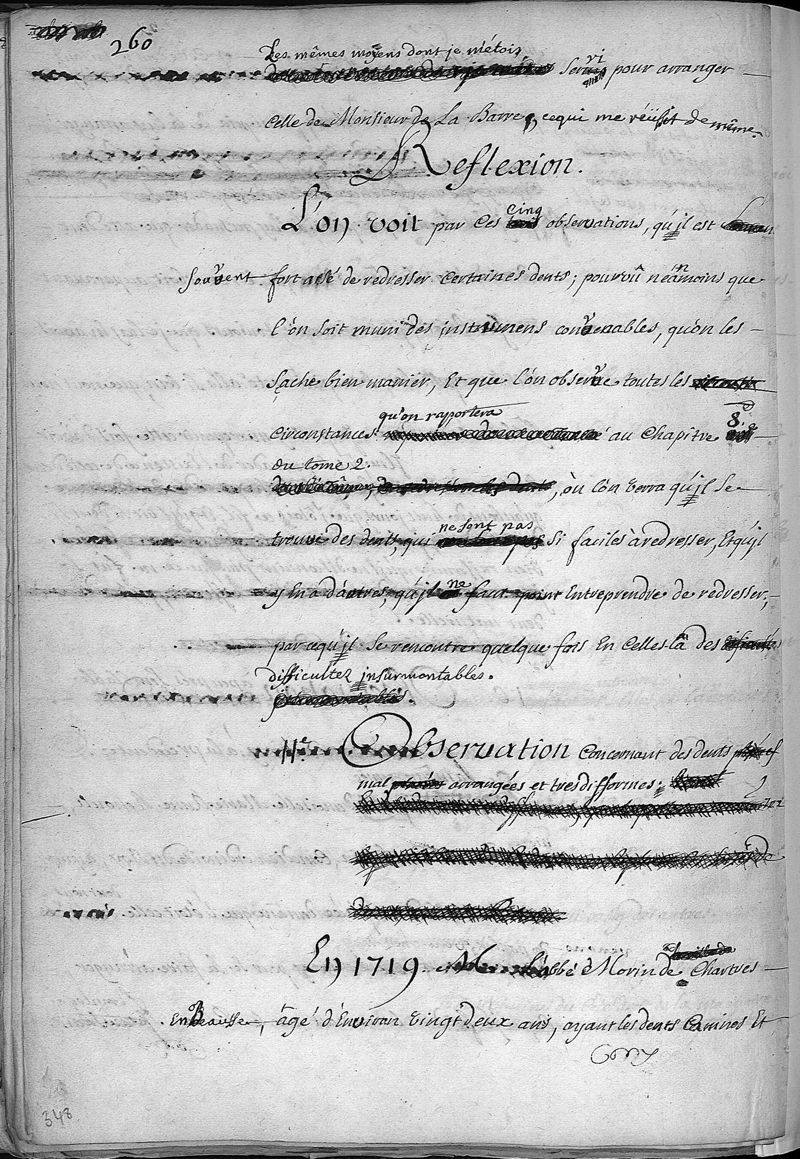 260
Les mêmes moyens dont je m'étois
servi pour arranger
celle de Monsieur de La Barre, ce qui me réüssit de même.
Reflexion.
L'on voit par ces cinq observations, qu'il est
souvent fort aisé de redresser certaines dents; pourvû néanmoins que
l'on soit muni des instrumens convenables, qu'on les
sache bien manier, Et que l'on observe toutes les
circonstances qu'on rapportera au Chapitre 8.e
du tome 2
, où l'on verra qu'il se
trouve des dents, qui ne sont pas si faciles à redresser, Et qu'il
y En a d'autres, qu'il ne faut point Entreprendre de redresser,
parce qu'il se rencontre quelque fois En celles là des
difficultez insurmontables.
11.e Observation concernant des dents
mal arrangées et tres difformes.
En 1719 l'abbé Morin de Chartres
En Beausse, âgé d'Environ vingt deux ans, ayant les dents Canines Et
348